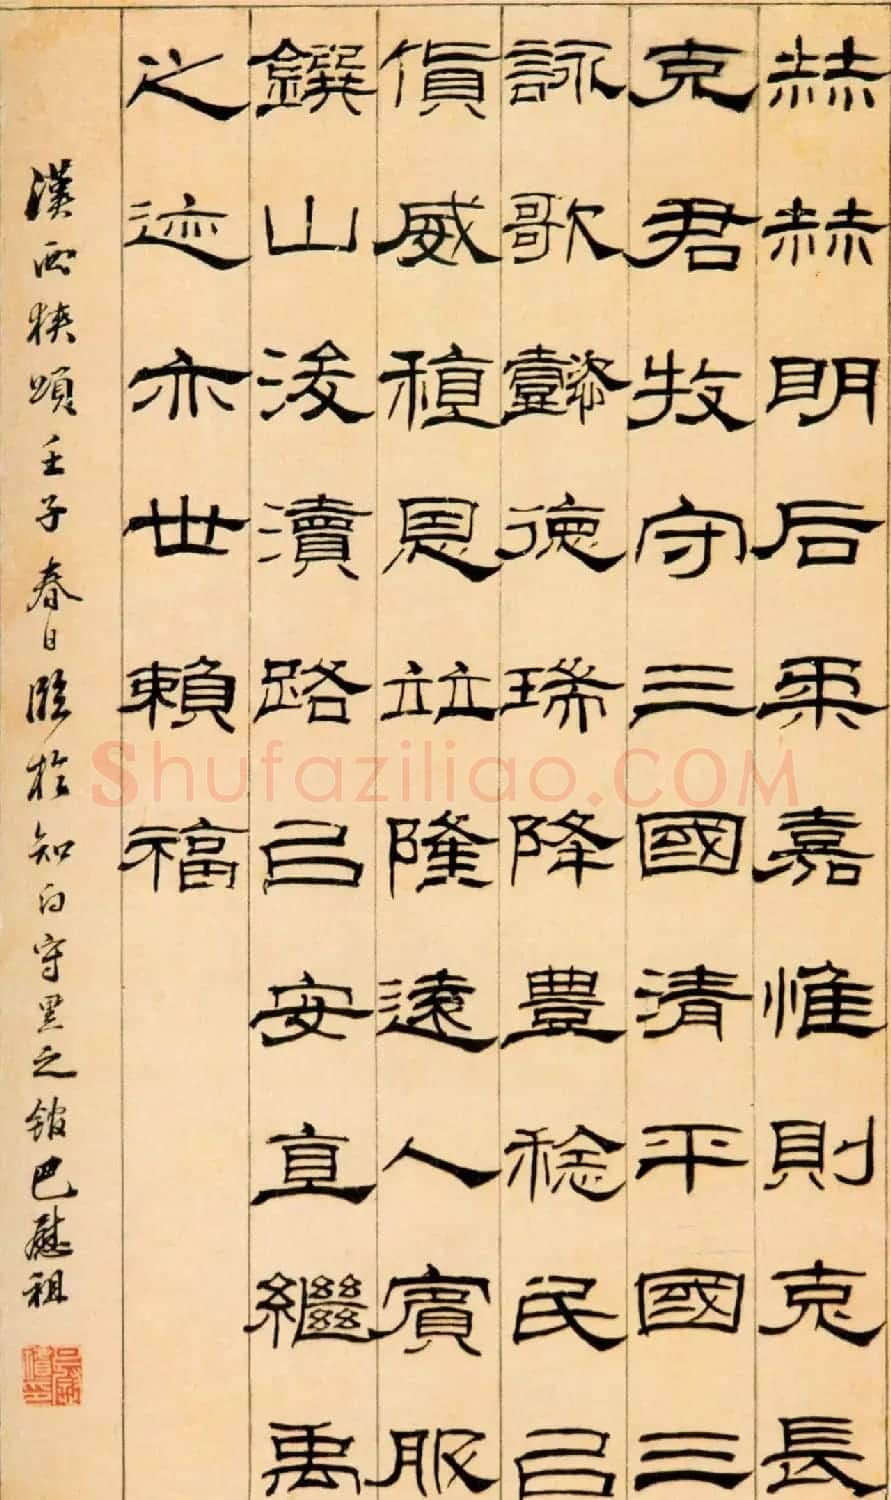 赫赫明后柔嘉惟則克長
克君牧守三國清平國三
詠歌懿德瑞降豐稔民㠯
貨威稙恩竝隆遠人賓服
鐉山浚瀆路㠯安直繼禹
之迹亦世賴福
漢西狹頌壬子春日臨於知白守黑之館巴慰祖
Shufaziliao.COM